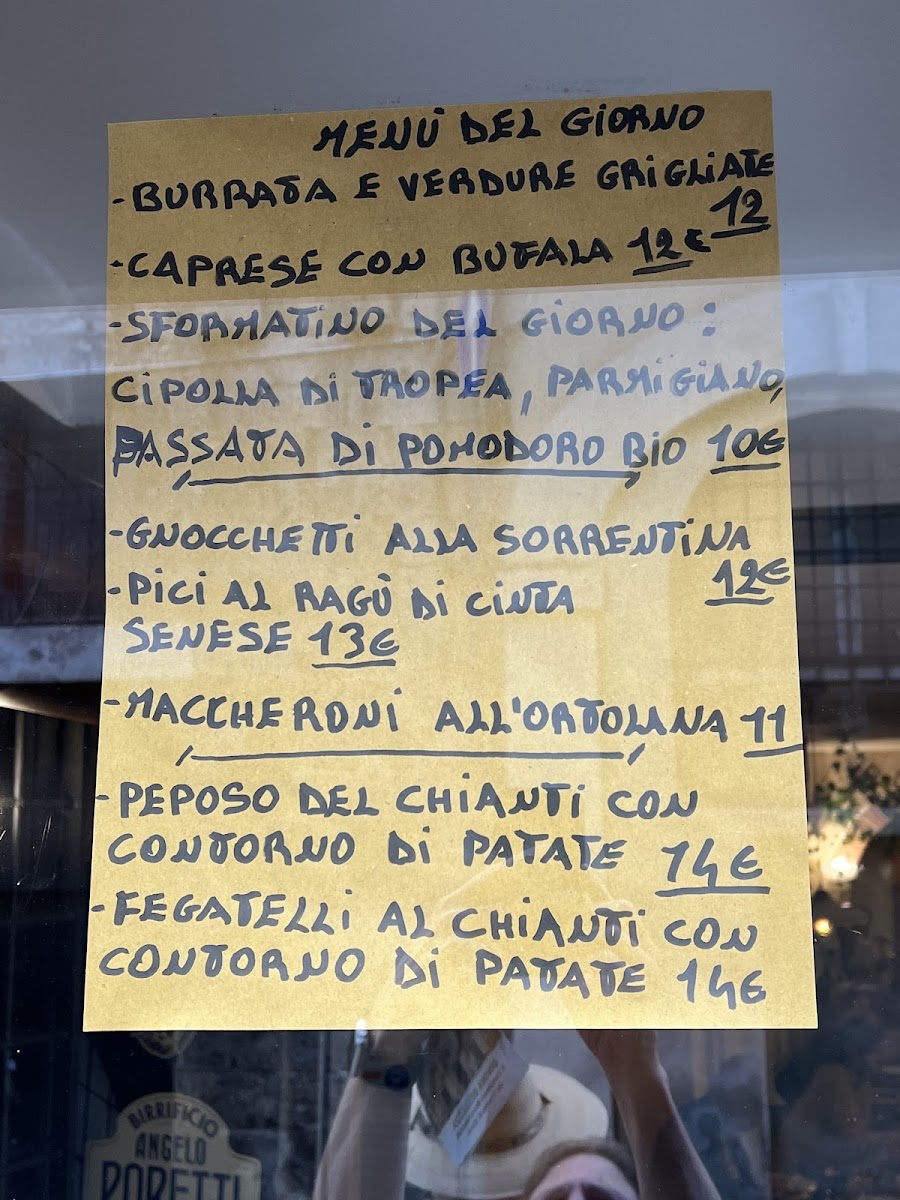 MENÙ DEL GIORNO
- BURRATA E VERDURE GRIGLIATE
12
- CAPRESE CON BUFALA 12€
- SFORMATINO DEL GIORNO:
CIPOLLA DI TROPEA, PARMIGIANO,
PASSATA DI POMODORO BIO 10€
- GNOCCHETTI ALLA SORRENTINA
12€
- PICI AL RAGÙ DI CINTA
SENESE 13€
- MACCHERONI ALL'ORTOLANA 11
- PEPOSO DEL CHIANTI CON
CONTORNO DI PATATE 14€
- FEGATELLI AL CHIANTI CON
CONTORNO DI PATATE 14€
BIRRIFICIO
ANGELO
PORETTI